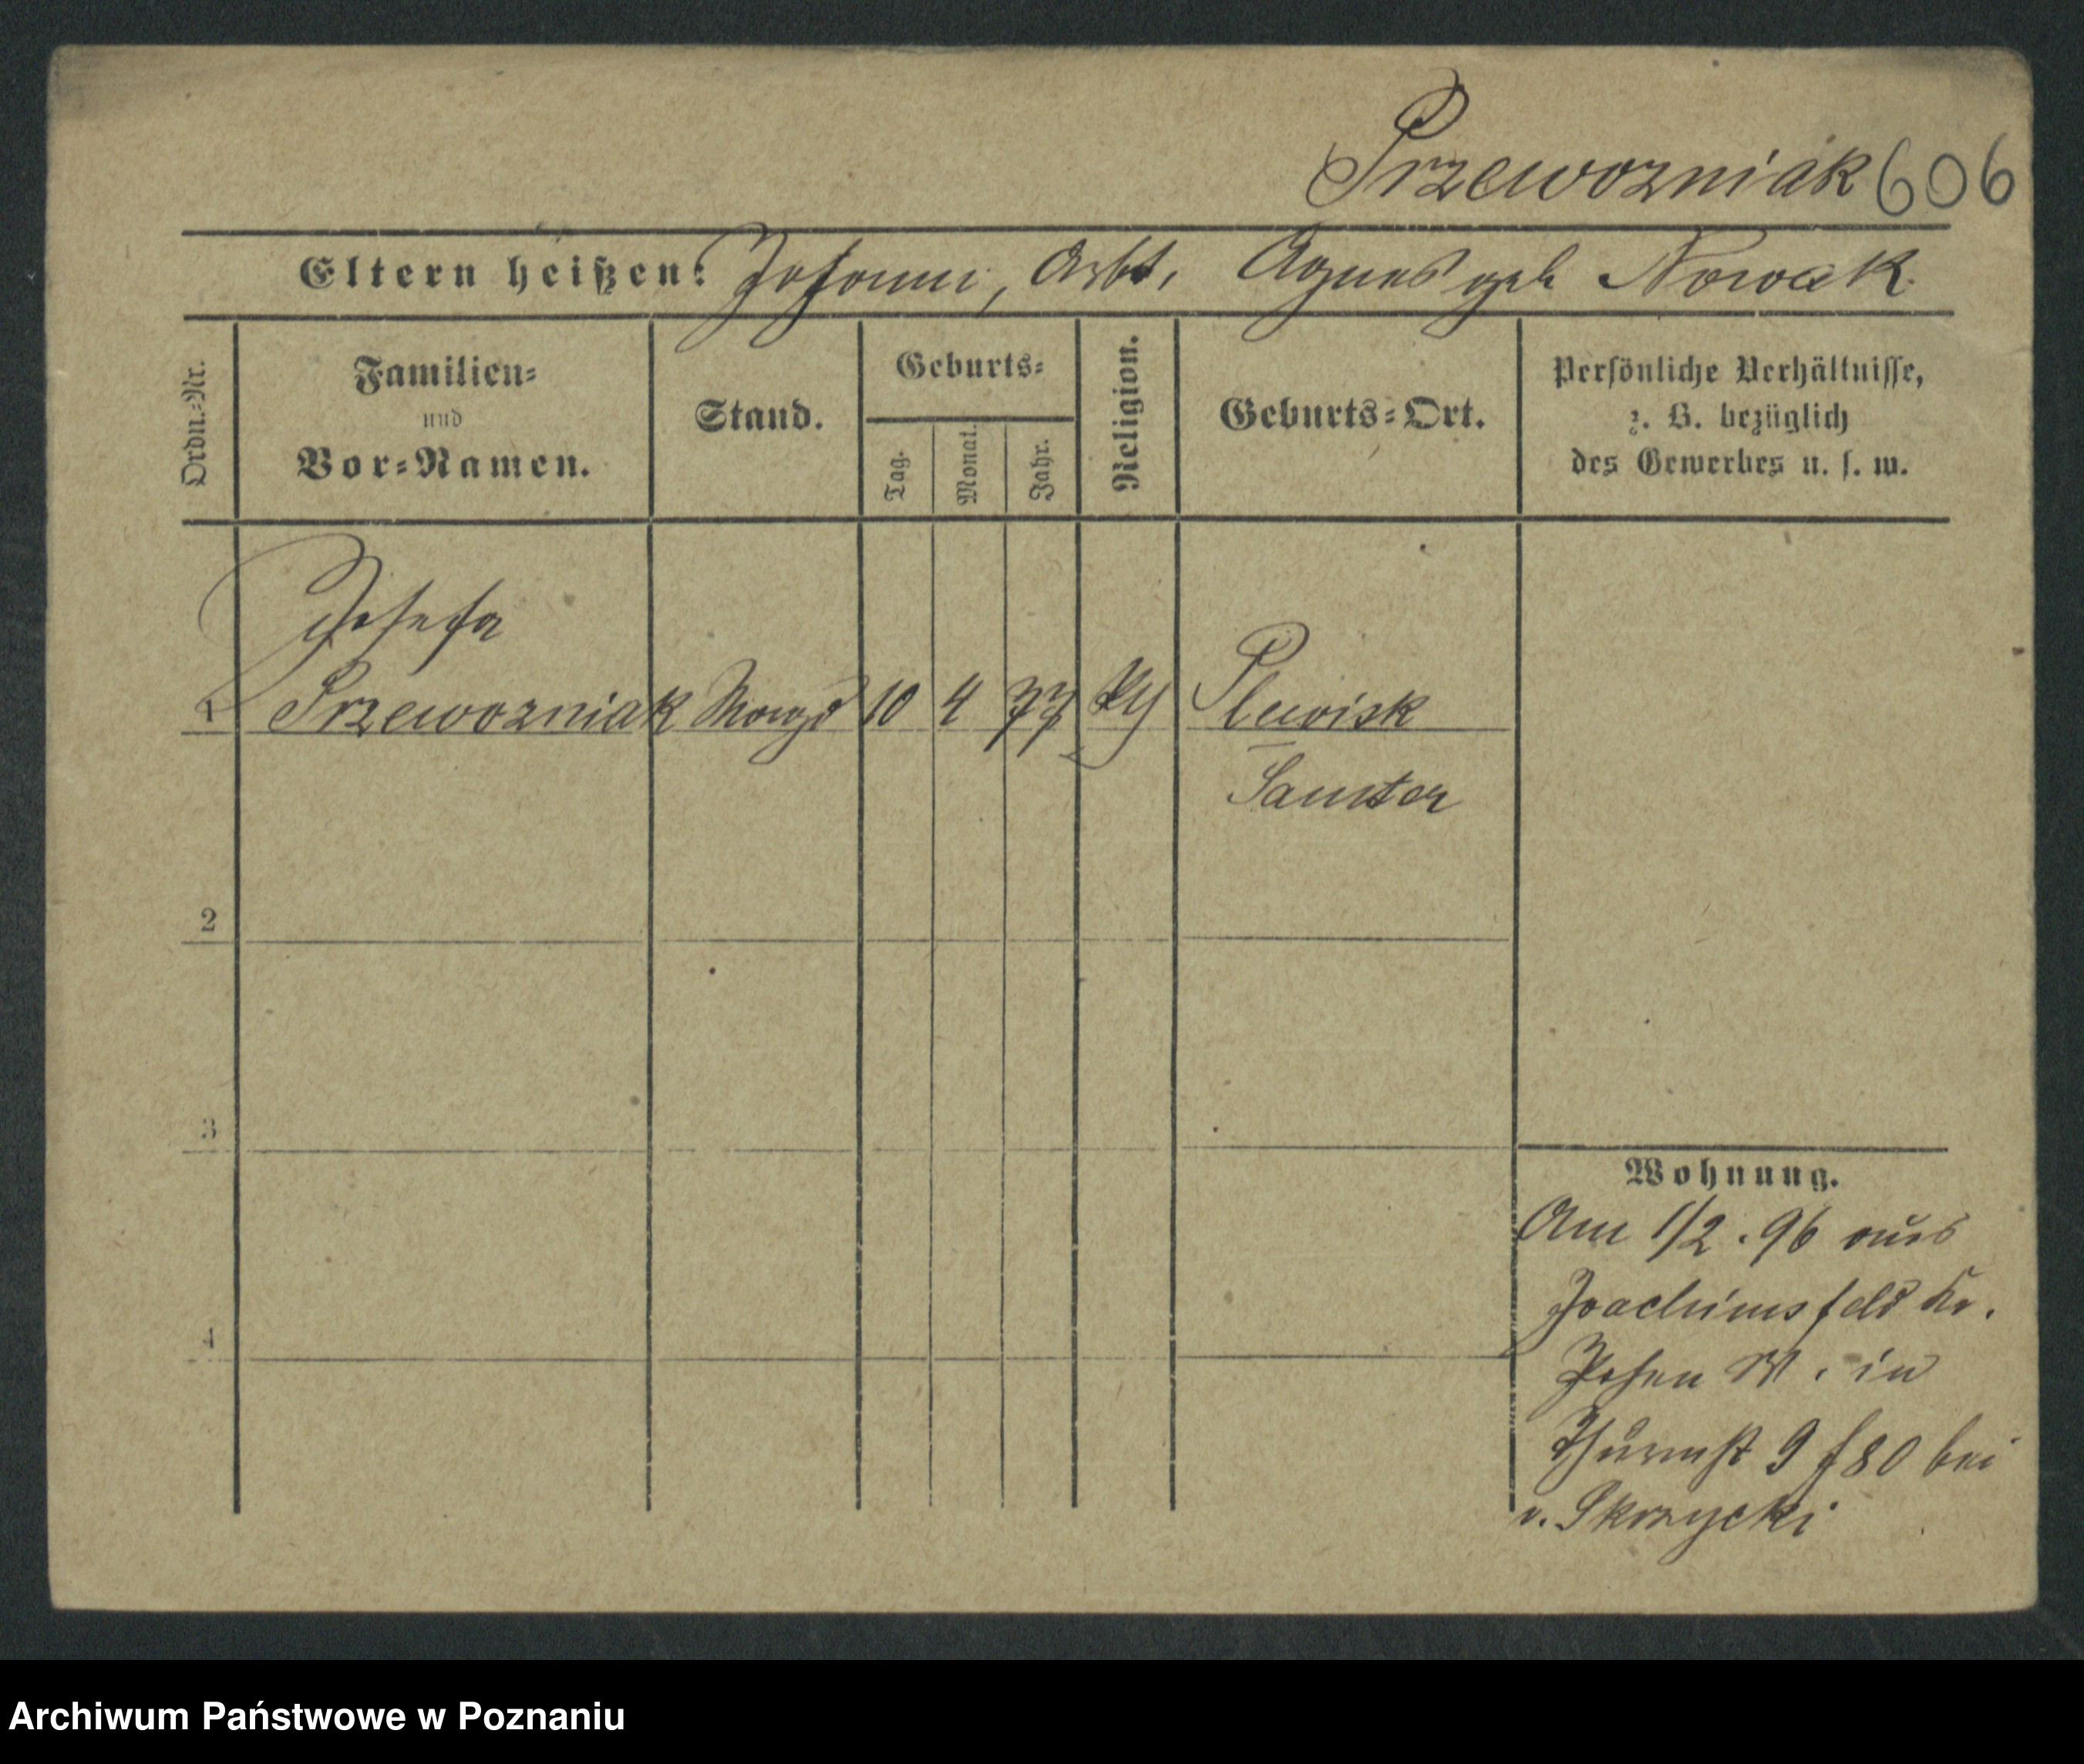 Przewozniak 606
Eltern heißen: Johann, Arbt, Agnes geb Nowak
Ordn.-Nr.
Familien- und Vor-Namen.
Stand.
Geburts-
Tag.
Monat.
Jahr.
Religion.
Geburts-Ort.
Persönliche Verhältnisse,
z. B. bezüglich
des Gewerbes u. s. w.
Josefa
1 Przewozniak Magd 10 4 77 Plewisk
Samter
2
3
4
Wohnung.
Am 1/2.96 aus
Joachimsfeld Kr.
Posen W. in
Thurmst 9 f80 bei
v. Skrzycki
Archiwum Państwowe w Poznaniu